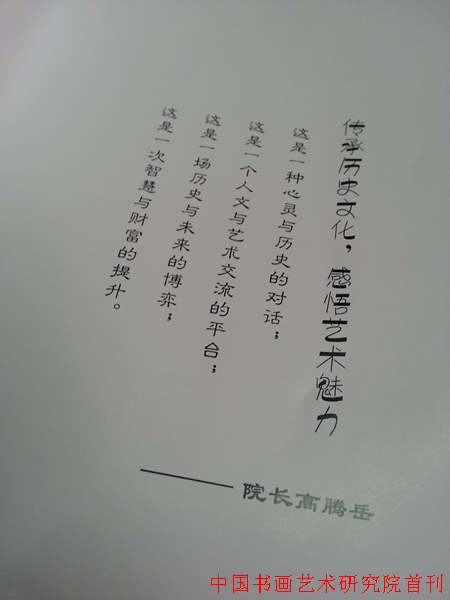 传承历史文化，感悟艺术魅力
这是一种心灵与历史的对话；
这是一个人文与艺术交流的平台；
这是一场历史与未来的博弈；
这是一次智慧与财富的提升。
——院长高腾岳
中国书画艺术研究院首刊